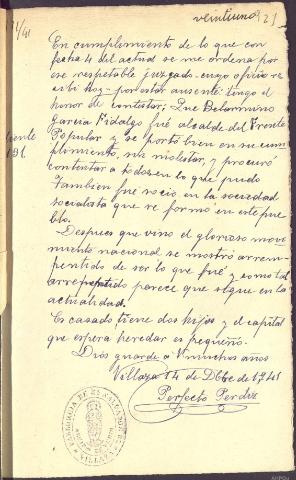 veintiuno 21
171/41
En cumplimiento de lo que con
fecha 4 del actual se me ordena por
ese respetable juzgado cuyo oficio re-
cibí hoy por estar ausente: tengo el
honor de contestar; Que Belarmino
García Fidalgo fué alcalde del Frente
Popular y se portó bien en su cum
plimiento, sin molestar, y procuró
contentar a todos en lo que pudo
Tambien fué socio en la sociedad
socialista que se formó en este pue
blo.
Despues que vino el glorioso movi
miento nacional se mostró arrem-
pentido de ser lo que fué y como tal
arrepentido parece que sigue en la
actualidad.
Es casado, tiene dos hijos y el capital
que espera heredar es pequeño.
Dios guarde a V. muchos años
Villaza 14 de Dbre de 1941
Perfecto Perdiz
PARROQUIA DE EL SALVADOR